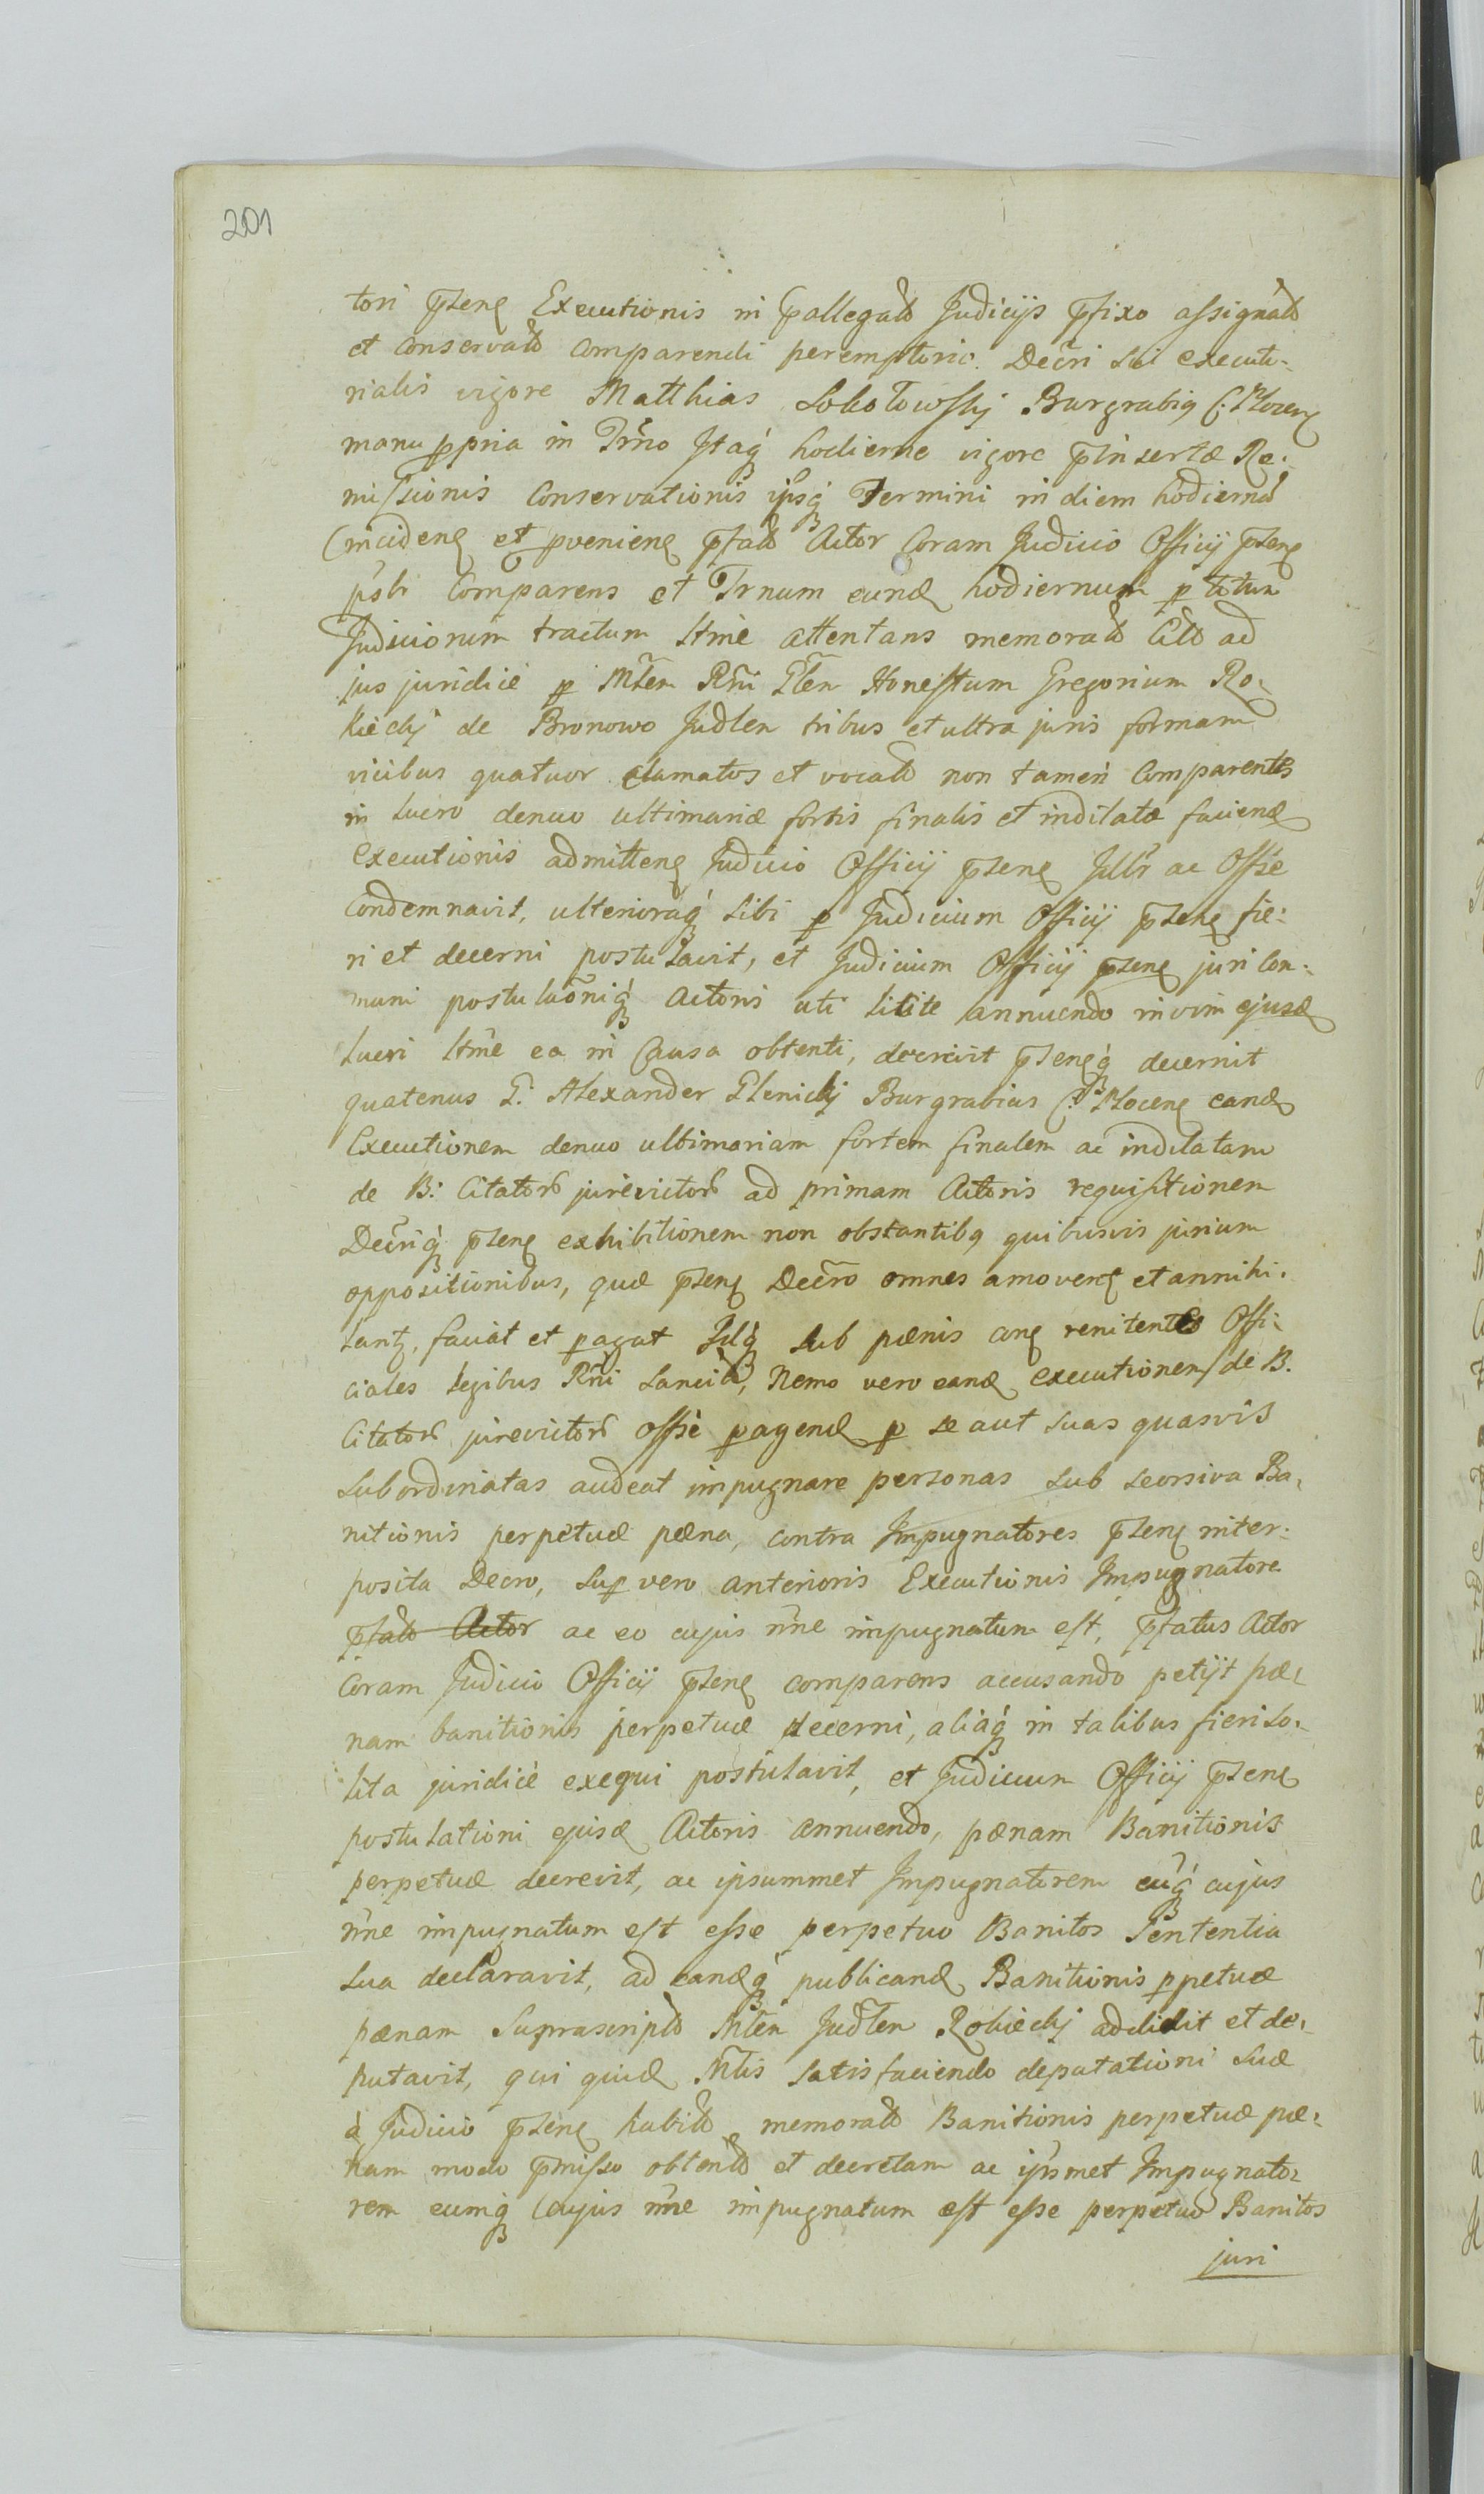 201
tori pñtenę Executionis in pallegató Judicijs pfixo assignató
et conservató comparendi peremptorio. Decri sui executo-
rialis vigore Matthias Sokołowskj Burgrabiq C: Plocenę
manu ppria in Trño Itaq́ hodierno vigore pinsertæ Re-
missionis conservationis ipsq́ Termini in diem hodierná
incidenę et pvenienę pfató Actor Coram Judicio Officij pñtenę
psłr Comparens et Trnum eund hodiernum p totum
Judiciorum tractum ltme attentans memorató Cito ad
jus juridicè p Młem Rñi Głem Honestum Gregorium Ro-
kieckj de Bronowo Judłem tribus et ultra juris formam
vicibus quatuor clamatos et vocató non tamen Comparentes
in lucro denuo ultimariæ fortis finalis et indilatæ faciend
executionis admittenę Judicio Officij pñtenę Jllr ac Offse
Condemnavit, ulterioraq́ sibi p Judicium Officij pñtenę fie-
ri et decerni postulavit, et Judicium Officij pñtenę juri con-
muni postulaõniq́ Actoris uti licite annuendo in vim ejusd
lucri ltme ea in Causa obtenti, decrevit pñtenęq́ decernit
quatenus G. Alexander Glenickj Burgrabius C: Plocenę eand
Executionem denuo ultimariam fortem finalem ac indilatam
de B: Citator jurevictor ad primam Actoris requisitionem
Decriq́ pñtenę exhibitionem non obstantibq quibusvis jurium
oppositionibus, quæ pñtenę Decro omnes amovenę et annihi-
lantz, faciat et pagat Idq́ sub pænis cong renitentes Offi-
ciales legibus Rñi sancitó, Nemo vero eand executionem de B.
Citator jurevictor offsè pagend p se aut suas quasvis
subordinatas audeat impugnare personas sub seorsiva Ba-
nitionis perpetuæ pæna, contra Impugnatores pñtenę inter-
posita Decro, Sup vero anterioris Executionis Impugnatore
pfató Actor ac eo cujus nñe impugnatum est, pfatus Actor
Coram Judicio Officij pñtenę comparens accusando petijt pæ-
nam banitionis perpetuæ decerni, aliaq́ in talibus fieri so-
lita juridicè exequi postulavit, et Judicium Officij pñtenę
postulationi ejusd Actoris annuendo, pænam Banitionis
perpetuæ decrevit, ac ipsummet Impugnatorem eũq́ cujus
nñe impugnatum est esse perpetuo Banitos Sententia
sua declaravit, ad eandq́ publicand Banitionis ppetuæ
pænam suprascriptó Młem Judłem Rokieckj addidit et de-
putavit, qui quid Młis satisfaciendo deputationi suæ
à Judicio pñtenę habitó memorató Banitionis perpetuæ pæ-
nam modo pmisso obtentó et decretam ac ipsmet Impugnato-
rem eumq́ cujus nñe impugnatum est esse perpetuo Banitos
juri